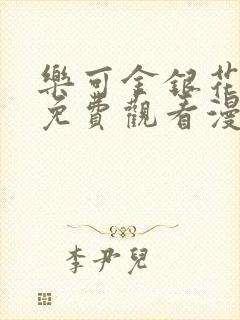 樂可金銀花
免費觀看漫
李尹兒